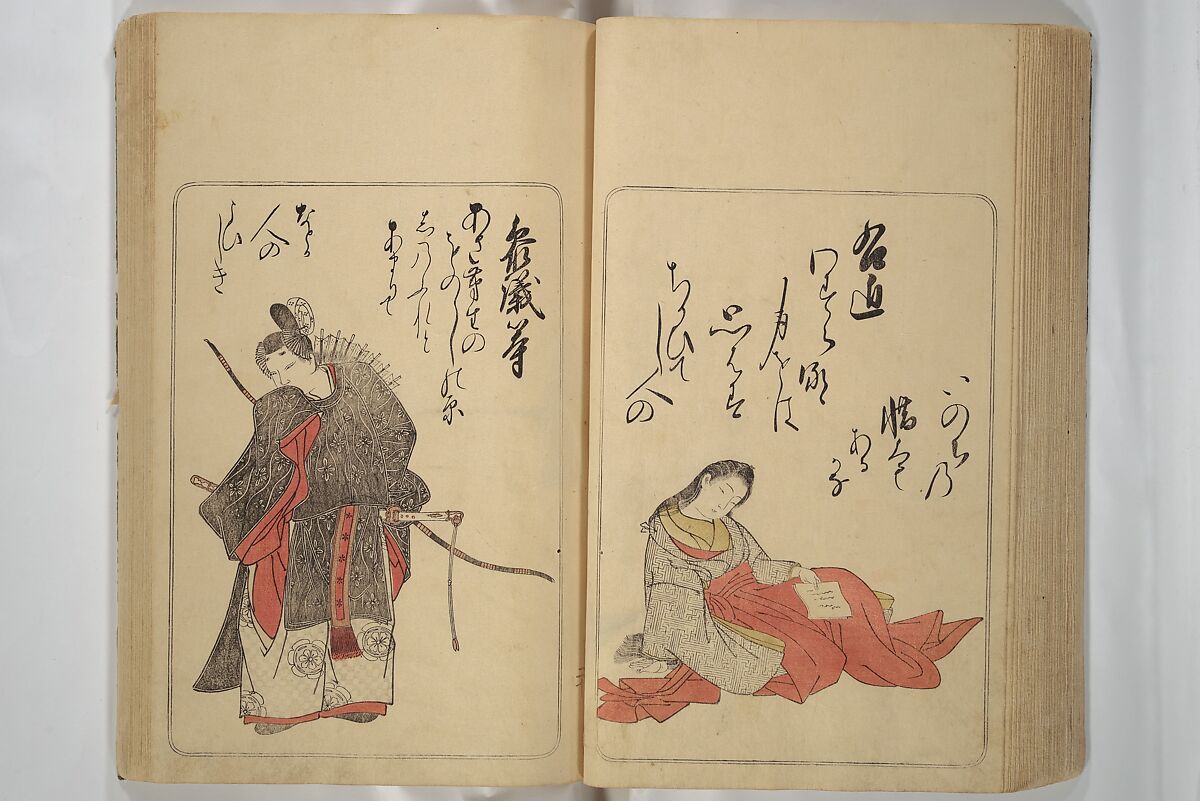 右近
わすらるゝ
身をは
思はす
ちかひて
し人の
いのち乃
惜くも
ある
かな
参議等
あさ茅生の
をのゝしの原
しのふれと
あまりて
なとか
人の
こひしき